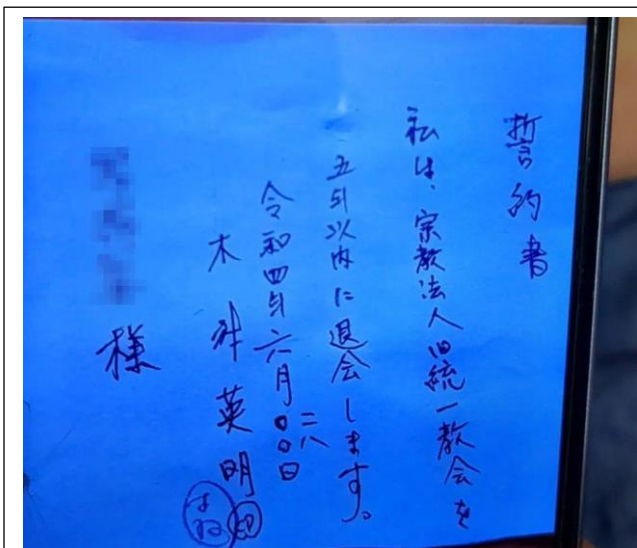 誓約書
私は、宗教法人旧統一教会を
五年以内に退会します。
令和四年六月〇〇日
二八
木 英明 印
様